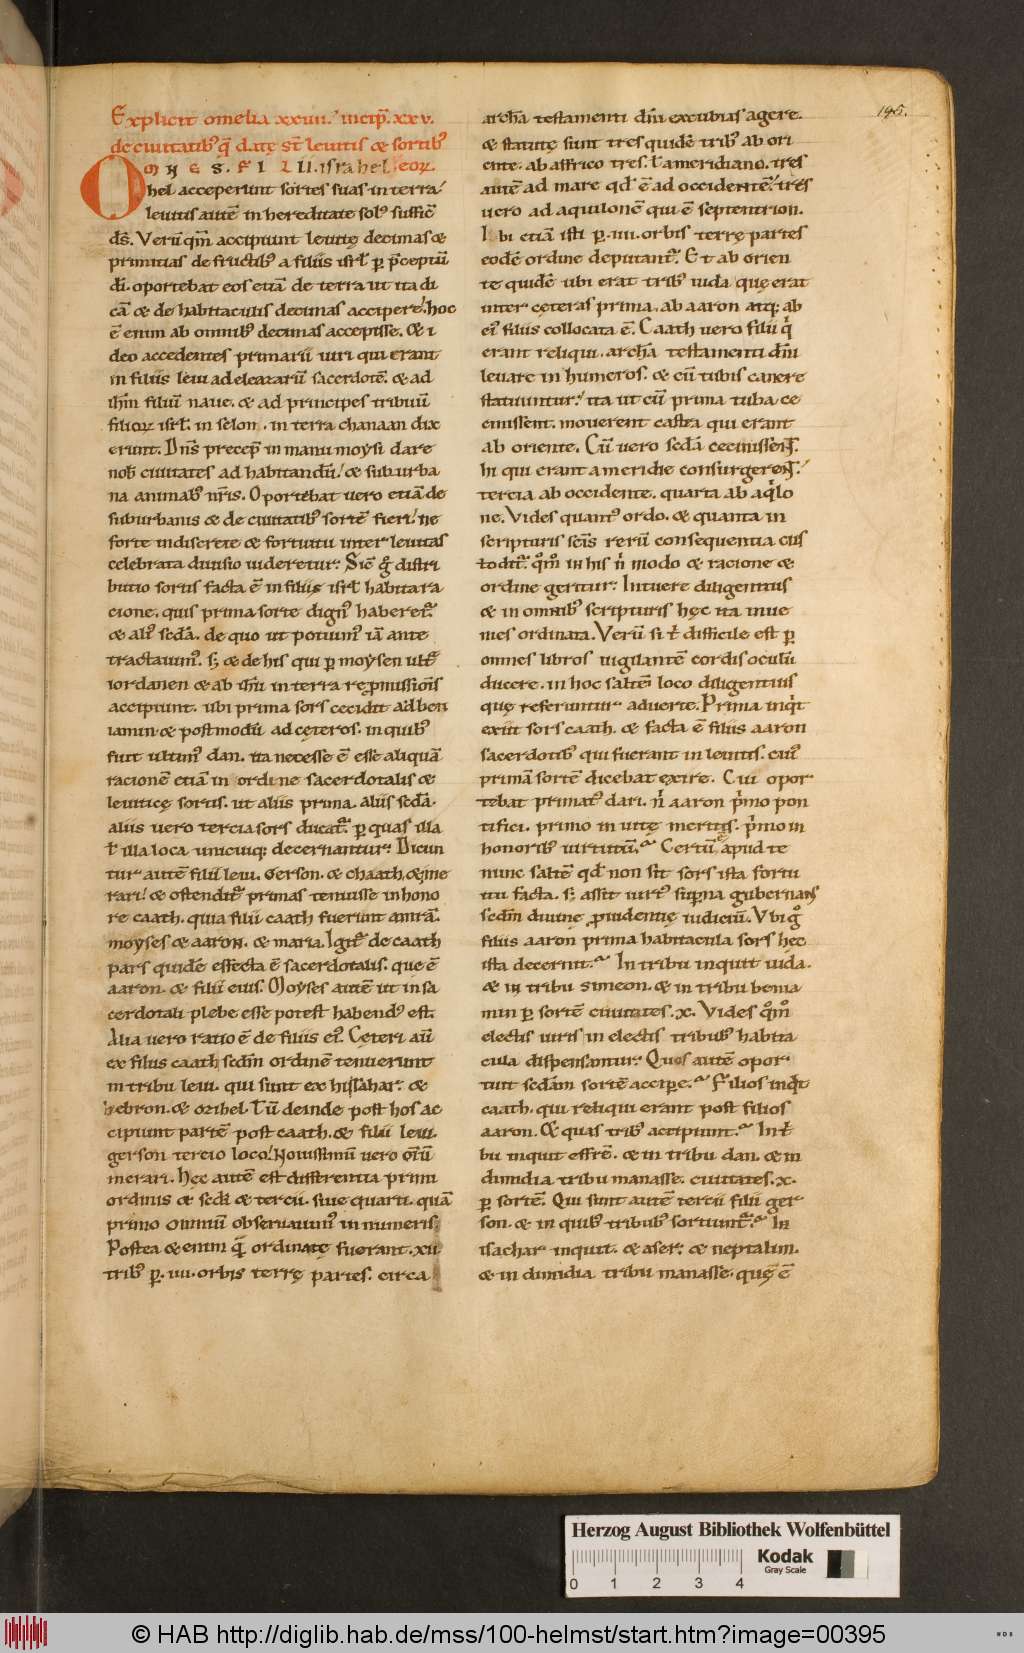 195.
Explicit omelia xxiiii. incip̄. xxv.
de ciuitatib' q̄ datę st̄ leuitis & sortib'
OMNES. FILII. israhel. eoꝝ.
hel acceperunt sortes suas in terra
leuitis autē in hereditate sol' suffic̄
ds̄. Verū qm̄ accipiunt leuitę decimas &
primitias de fructib' a filiis isrl̄ p̄ p̄ceptū
dī. oportebat eos etiā de terra ut ita di
cā & de habitaculis decimas accipere. hoc
ē enim ab omnib' decimas accepisse. & i
deo accedentes primarii uiri qui erant
in filiis leui ad eleazarū sacerdotē. & ad
ihm̄ filiū naue. & ad principes tribuū
filioꝝ isrl̄. in selon. in terra chanaan dix
erunt. Dns̄ precep̄ in manu moysi dare
nob' ciuitates ad habitandū. & suburba
na animab' nr̄is. Oportebat uero etiā de
suburbanis & de ciuitatib' sortē fieri. ne
forte indiscrete & fortuitu inter leuitas
celebrata diuisio uideretur. Sic̄ g° distri
butio sortis facta ē in filiis isrl̄ habita ra
cione. quis prima sorte dign' haberet̄.
& ali' scd̄a. de quo ut potuim' iā ante
tractauim'. s; & de his qui p̄ moysen ult̄
iordanen & ab ih̄u in terra repmissionis
accipiunt. ubi prima sors cecidit ad ben
iamin. & postmodū ad cęteros. in quib'
fuit ultim' dan. ita necesse ē esse aliquā
racionē etiā in ordine sacerdotalis &
leuiticę sortis. ut aliis prima. aliis scd̄a.
aliis uero tercia sors ducat̄. p̄ quas illa
ł illa loca unicuiq; decernantur. Dicun
tur autē filii leui. Gerson. & chaath. & me
rari. & ostendit̄ primas tenuisse in hono
re caath. quia filii caath fuerunt amrā.
moyses & aaron. & maria. Igit̄ de caath
pars quidē effecta ē sacerdotalis. que ē
aaron. & filii eius. Moyses autē ut in sa
cerdotali plebe esse potest habend' est.
Alia uero ratio ē de filiis ei'. Cęteri aū
ex filiis caath scdm̄ ordinē tenuerunt
in tribu leui. qui sunt ex hissahar. &
hebron. & ozihel. Tū deinde post hos ac
cipiunt partē post caath. & filii leui.
gerson tercio loco. Nouissimū uero om̄ū
merari. Hęc autē est differentia primi
ordinis & scdi & tercii. siue quarti. quā
primo omniū obseruauim' in numeris.
Postea & enim q̄ ordinatę fuerant. xii
trib' p̄. iiii. orbis terrę partes. circa
archā testamenti dn̄i excubias agere.
& statutę sunt tres quidē trib' ab ori
ente. ab affrico tres. ł a meridiano. tres
autē ad mare qd̄ ē ad occidentē. tres
uero ad aquilonē qui ē septentrion.
Ibi etiā isti p̄. iiii. orbis terrę partes
eodē ordine deputant̄. Et ab orien
te quidē ubi erat trib' iuda quę erat
inter cęteras prima. ab aaron atq; ab
ei' filiis collocata ē. Caath uero filii q̄
erant reliqui. archā testamenti dn̄i
leuare in humeros. & cū tubis canere
statuuntur. ita ut cū prima tuba ce
cinissent. mouerent castra qui erant
ab oriente. Cū uero scd̄a cecinissent.
hi qui erant a meridie consurgerent.
tercia ab occidente. quarta ab aq̇lo
ne. Vides quant' ordo. & quanta in
scripturis scīs rerū consequentia cus
todit̄. q°m° in his n̄ modo & racione &
ordine geritur. Intuere diligentius
& in omnib' scripturis hęc ita inue
nies ordinata. Verū si ł difficile est p̄
omnes libros uigilantē cordis oculū
ducere. in hoc saltē loco diligentius
quę referuntur aduerte. Prima inq̇t
exiit sors caath. & facta ē filiis aaron
sacerdotib' qui fuerant in leuitis. cui'
primā sortē dicebat exire. Cui opor
tebat primat' dari. n̄ aaron p̄mo pon
tifici. primo in uitę meritis. p̄mo in
honorib' uirtutū. Certū ē apud te
nunc saltē qd̄ non sit sors ista fortu
itu facta. s; assit uirt' sup̄na gubernans
scdm̄ diuinę prouidentię iudiciū. Vbi g°
filiis aaron prima habitacula sors hęc
ista decernit. In tribu inquit iuda.
& in tribu simeon. & in tribu benia
min p̄ sortē ciuitates. x. Vides q°m°
electis uiris in electis tribub' habita
cula dispensantur. Quos autē opor
tuit scdam sortē accipe. Filios inq̇t
caath. qui reliqui erant post filios
aaron. & quas trib' accipiunt. In t̄
bu inquit effrē. & in tribu dan. & in
dimidia tribu manasse. ciuitates. x.
p̄ sortē. Qui sunt autē tercii filii ger
son. & in quib' tribub' sortiunt̄. In
isachar inquit. & aser. & neptalim.
& in dimidia tribu manasse. quę ē
Herzog August Bibliothek Wolfenbüttel
Kodak
Gray Scale
0 1 2 3 4
© HAB http://diglib.hab.de/mss/100-helmst/start.htm?image=00395